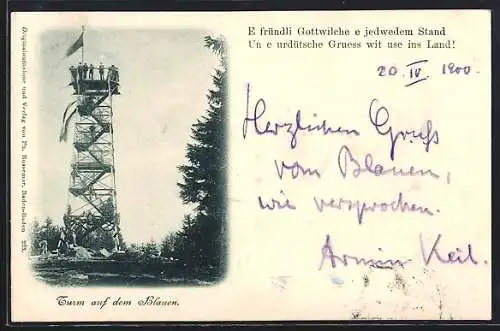 E fründli Gottwilche e jedwedem Stand
Un e urdütsche Gruess wit use ins Land!
20. IV. 1900.
Herzlichen Gruß
vom Blauen,
wie versprochen.
Armin Keil.
Turm auf dem Blauen.
Originalaufnahme und Verlag von Ph. Bussemer, Baden-Baden 225.